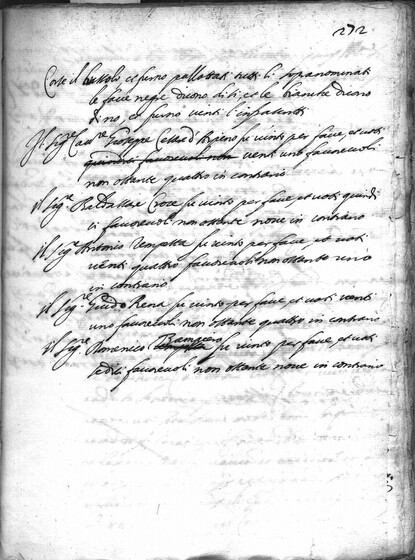 272
Corse il bussolo et furno pallottati tutti li sopranominati
le fave negre dicono di sì et le bianche dicono
di no, et furno venti l'infrascritti
Il Sig.re Cav.re Gioseppe Cesari d'Arpino fu vinto per fave, et voti
quindici favorevoli non venti uno favorevoli
non ostante quattro in contrario
il Sig.re Baldassare Croce fu vinto per fave et voti quindi
ci favorevoli non ostante nove in contrario
il Sig.re Antonio Tempesta fu vinto per fave, et voti
venti quattro favorevoli non ostante uno
in contrario
il Sig.re Guido Rena fu vinto per fave et voti venti
uno favorevoli non ostante quattro in contrario
il Sig.re Domenico Zampiero fu vinto per fave, et voti
sedici favorevoli non ostante nove in contrario